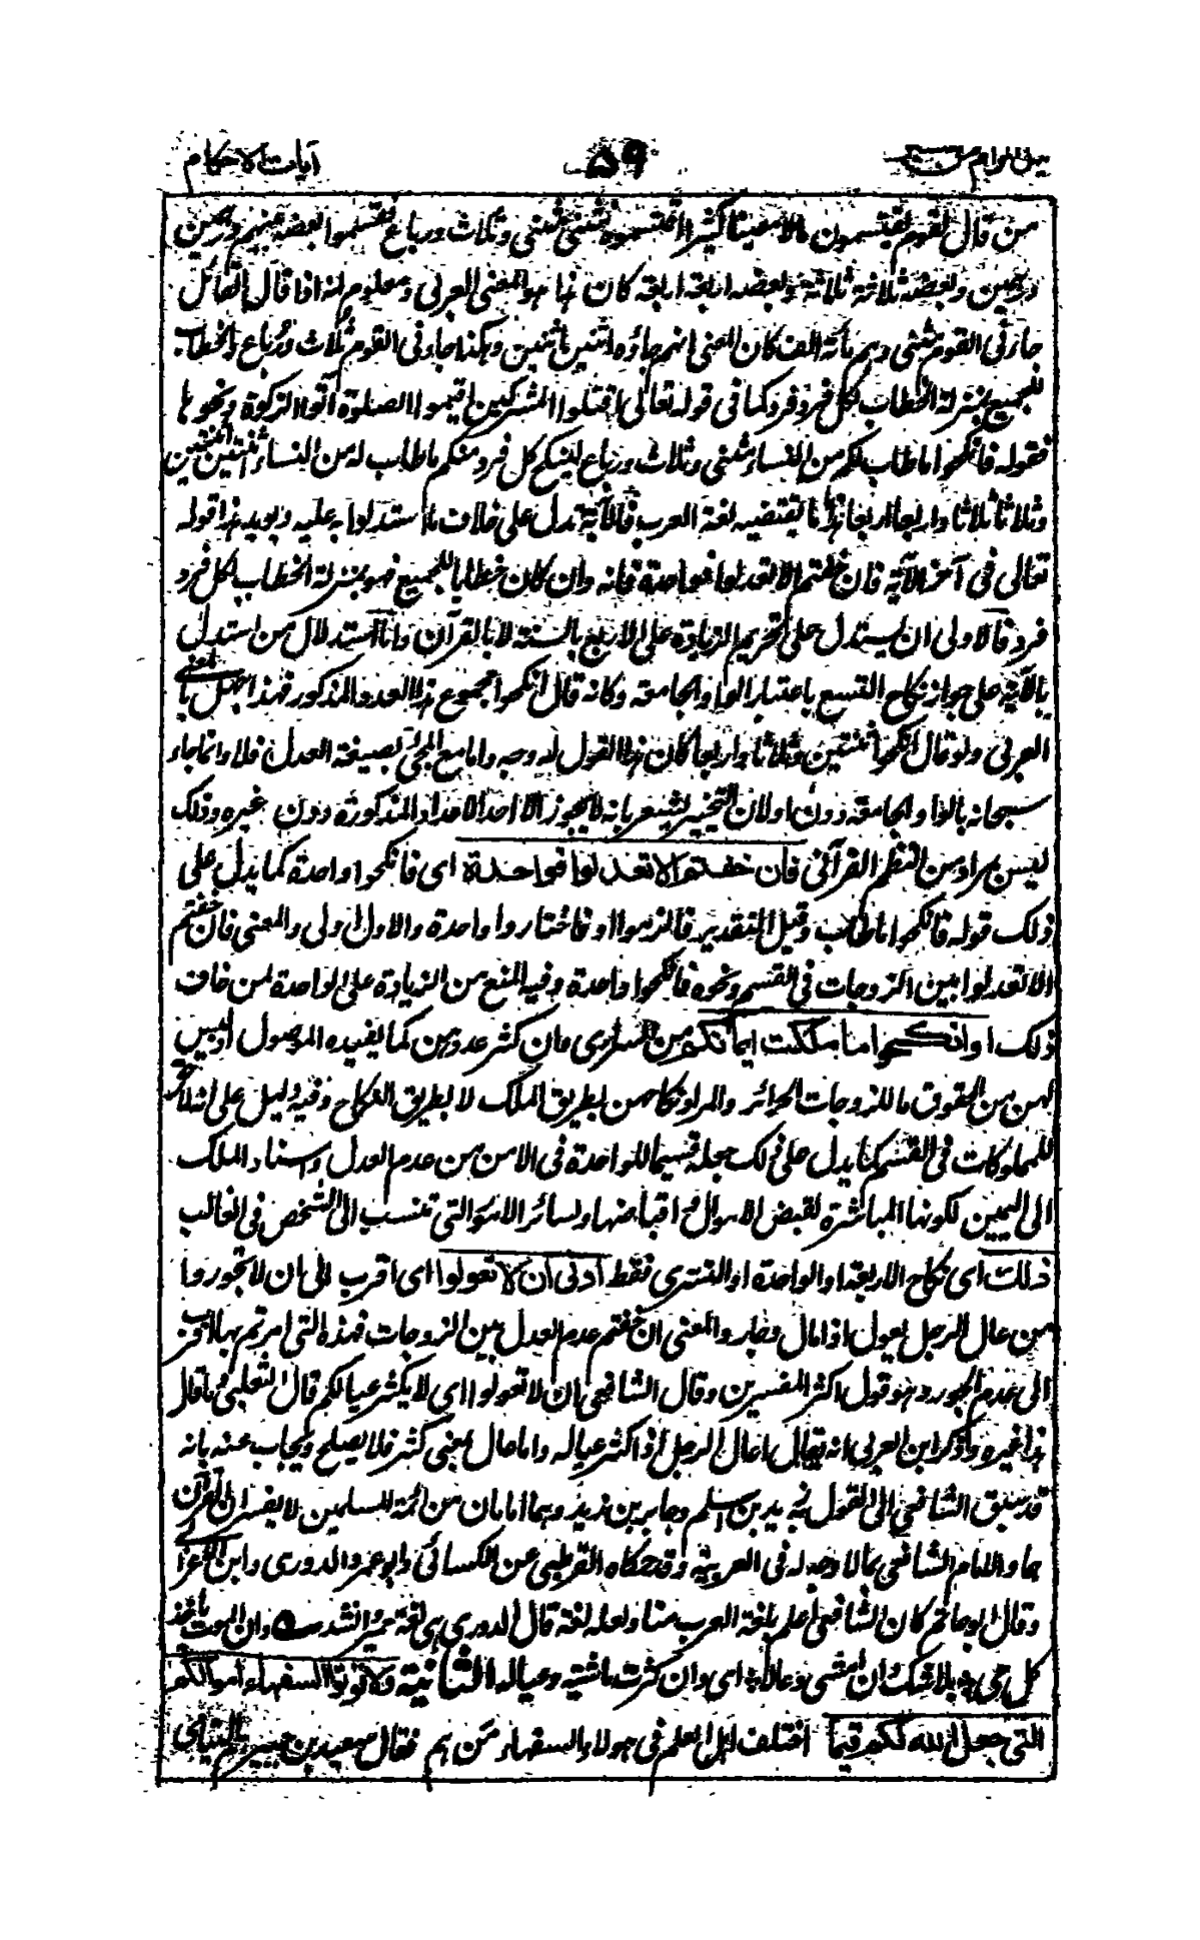 نيل المرام من تفسير ٥٩ آيات الاحكام
من قال لقوم يقتسمون مالا معينا كثيرا اقتسموه مثنى مثنى وثلاث ورباع فقسموا بعضه بينهم درهمين
درهمين وبعضه ثلاثة ثلاثة وبعضه اربعة اربعة كان هذا هو المعنى العربى ومعلوم انه اذا قال القائل
جاءنى القوم مثنى وهم مائة الف كان المعنى انهم جاؤه اثنين اثنين وهكذا جاءنى القوم ثُلاث ورُباع والخطاب
للجميع بمنزلة الخطاب لكل فرد فرد كما فى قوله تعالى اقتلوا المشركين اقيموا الصلوة آتوا الزكوة ونحوها
فقوله فانكحوا ما طاب لكم من النساء مثنى وثلاث ورباع لينكح كل فرد منكم ما طاب له من النساء اثنتين اثنتين
وثلاثا ثلاثا واربعا اربعا هذا ما تقتضيه لغة العرب فالآية تدل على خلاف ما استدلوا به عليه ويويد هذا قوله
تعالى فى آخر الآية فان خفتم الا تعدلوا فواحدة فانه وان كان خطابا للجميع فهو بمنزلة الخطاب لكل فرد
فرد فالاولى ان يستدل على تحريم الزيادة على الاربع بالسنة لا بالقرآن واما استدلال من استدل
بالآية على جواز نكاح التسع باعتبار الواو الجامعة وكانه قال انكحوا مجموع هذا العدد المذكور فهذا جهل بالمعنى
العربى ولو قال انكحوا ثنتين وثلاثا واربعا كان هذا القول له وجه واما مع المجئ بصيغة العدل فلا وانما جاء
سبحانه بالواو الجامعة دون او لان التخيير يشعر بانه لا يجوز الا احد الاعداد المذكورة دون غيره وذلك
ليس بمراد من النظم القرآنى فان خفتم الا تعدلوا فواحدة اى فانكحوا واحدة كما يدل على
ذلك قوله فانكحوا ما طاب وقيل التقدير فالزموا او فاختاروا واحدة والاول اولى والمعنى فان خفتم
الا تعدلوا بين الزوجات فى القسم ونحوه فانكحوا واحدة وفيه المنع من الزيادة على الواحدة لمن خاف
ذلك او انكحوا ما ملكت ايمانكم من السرارى وان كثر عددهن كما يفيده الموصول اذ ليس
لهن من الحقوق ما للزوجات الحرائر والمراد نكاحهن بطريق الملك لا بطريق النكاح وفيه دليل على انه لا حق
للمملوكات فى القسم كما يدل على ذلك جعله قسيما للواحدة فى الامن من عدم العدل واسناد الملك
الى اليمين لكونها المباشرة لقبض الاموال واقباضها ولسائر الامور التى تنسب الى الشخص فى الغالب
ذلك اى نكاح الاربعة او الواحدة او التسرى فقط ادنى ان لا تعولوا اى اقرب الى ان لا تجوروا
من عال الرجل يعول اذا مال وجار والمعنى ان خفتم عدم العدل بين الزوجات فهذه التى امرتم بها اقرب
الى عدم الجور وهو قول اكثر المفسرين وقال الشافعى ان لا تعولوا اى لا يكثر عيالكم قال الثعلبى وما قال
هذا غيره وذكر ابن العربى انه يقال اعال الرجل اذا كثر عياله واما عال بمعنى كثر فلا يصلح ويجاب عنه بانه
قد سبق الشافعى الى القول به زيد بن اسلم وجابر بن زيد وهما امامان من ائمة المسلمين لا يفسران القرآن
هما والامام الشافعى بما لا وجه له فى العربية وقد حكاه القرطبى عن الكسائى وابو عمر والدورى وابن الاعرابى
وقال ابو حاتم كان الشافعى اعلم بلغة العرب منا ولعله لغة قال الدورى هى لغة حمير وانشد وان الموت ياخذ
كل حى ۞ بلا شك وان امشى وعالا ۞ اى وان كثرت ماشيته وعياله الثانية ولا تؤتوا السفهاء اموالكم
التى جعل الله لكم قيما اختلف اهل العلم فى هولاء السفهاء من هم فقال سعيد بن جبير هم اليتامى